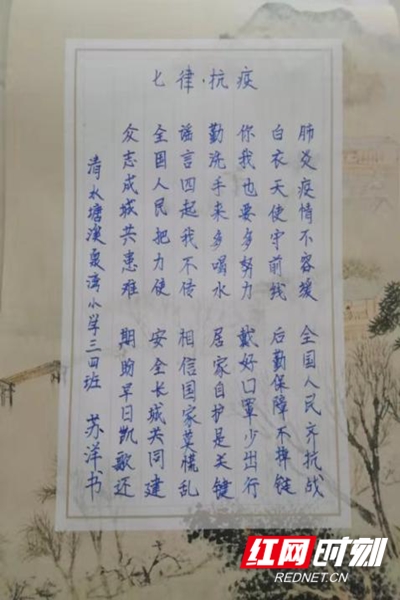 七律·抗疫
肺炎疫情不容缓 全国人民齐抗战
白衣天使守前线 后勤保障不掉链
你我也要多努力 戴好口罩少出行
勤洗手来多喝水 居家自护是关键
谣言四起我不传 相信国家莫慌乱
全国人民把力使 安全长城共同建
众志成城共患难 期盼早日凯歌还
清水塘溪泉湾小学三四班 苏洋书
红网时刻
REDNET.CN